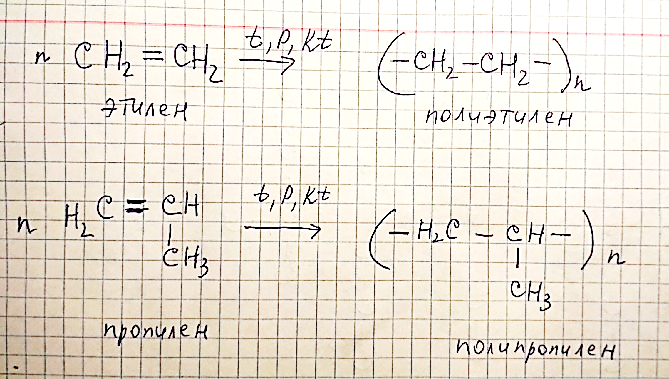 n CH₂=CH₂ t,P,Kt → (–CH₂–CH₂–)n
этилен полиэтилен
n H₂C=CH t,P,Kt → (–H₂C–CH–)n
| |
CH₃ CH₃
пропилен полипропилен